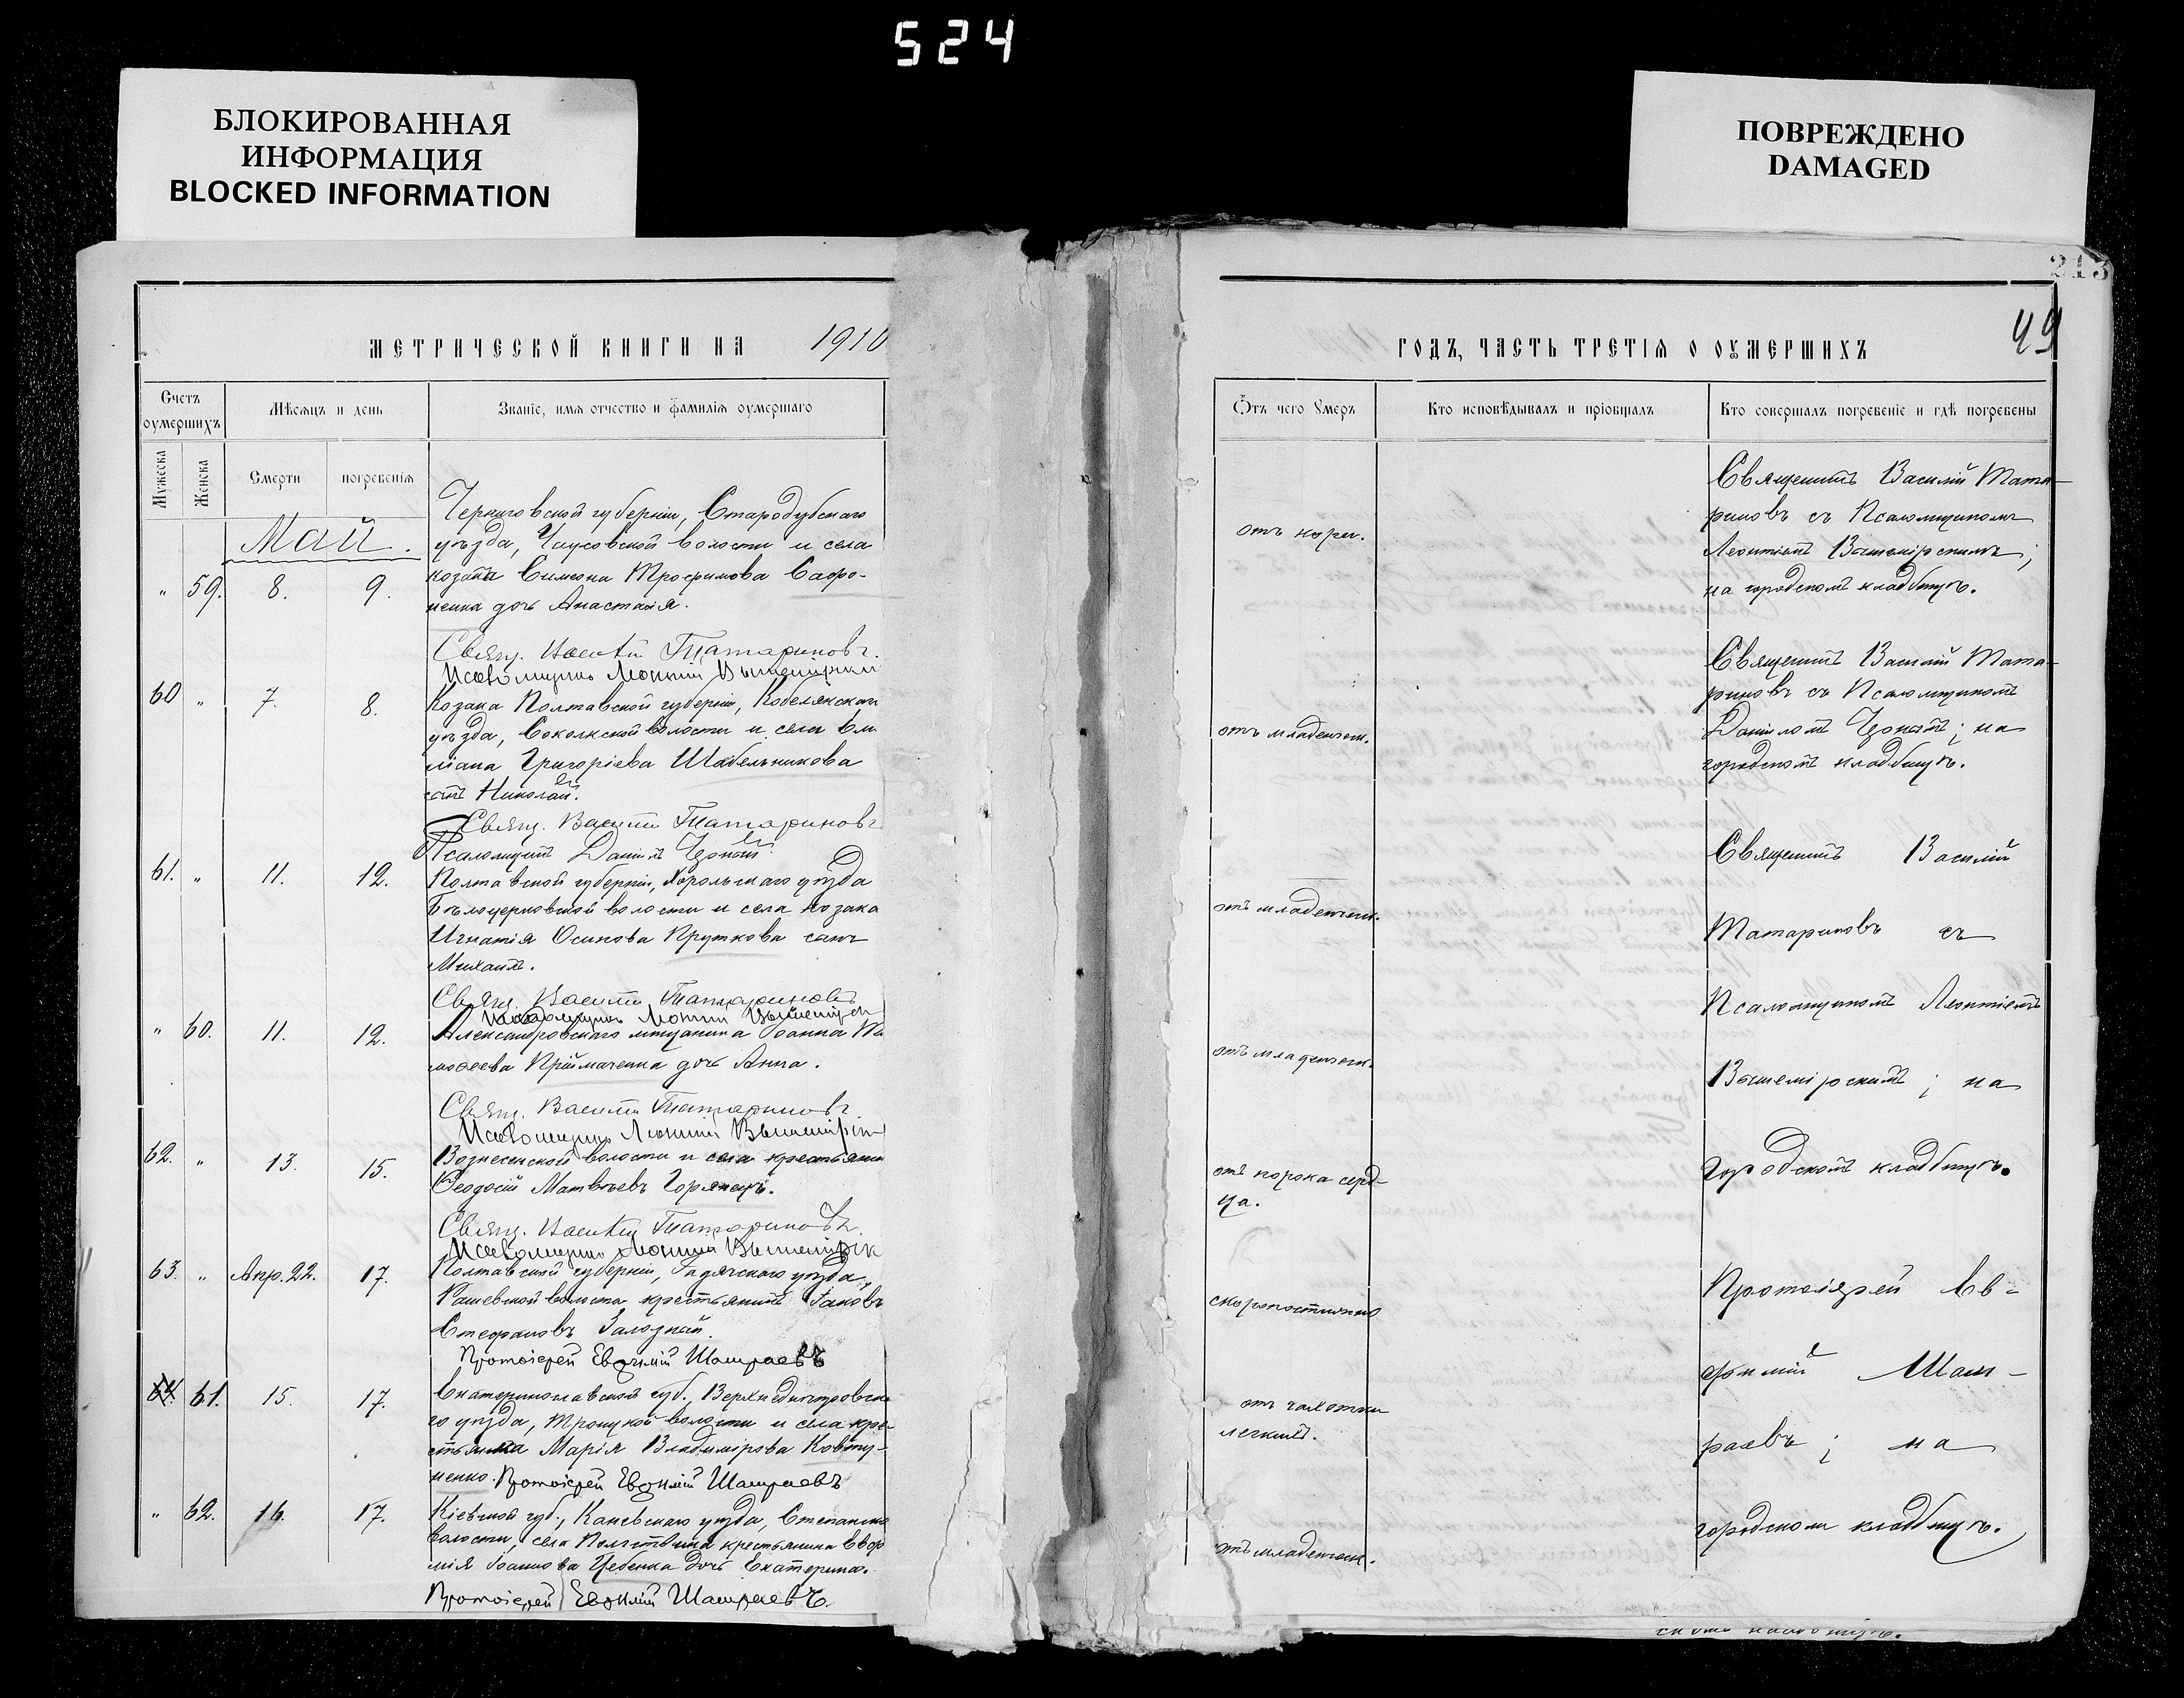 524
БЛОКИРОВАННАЯ
ИНФОРМАЦИЯ
BLOCKED INFORMATION
ПОВРЕЖДЕНО
DAMAGED
213
49
МЕТРИЧЕСКОЙ КНИГИ НА 1910
Счетъ оумершихъ
Мужеска
Женска
Мѣсяцъ и день
Смерти
погребенія
Званіе, имя отчество и фамилія оумершаго
Май.
Черниговской губерніи, Стародубскаго
уѣзда, волости и села
" 59. 8. 9. козака Симеона Трофимова Сафо-
ненка дочь Анастасія.
Свящ. Василій Татариновъ.
Псаломщикъ Леонтій
60 " 7. 8. Козака Полтавской губерніи, Кобелякскаго
уѣзда, Соколкской волости и села Еми
ліана Григоріева Шабельникова
сынъ Николай.
Свящ. Василій Татариновъ
Псаломщикъ Даніилъ
61. " 11. 12. Полтавской губерніи, Хорольскаго уѣзда
Бѣлоцерковской волости и села козака
Игнатія Осипова Пруткова сынъ
Михаилъ.
Свящ. Василій Татариновъ
Псаломщикъ Леонтій
" 60. 11. 12. Александровскаго мѣщанина Іоанна Ти
моѳеева Пріймаченка дочь Анна.
Свящ. Василій Татариновъ.
Псаломщикъ Леонтій
62. " 13. 15. Вознесенской волости и села крестьянинъ
Ѳеодосій Матвѣевъ Горянецъ.
Свящ. Василій Татариновъ.
Псаломщикъ Леонтій
63. " Апр. 22. 17. Полтавской губерніи, Гадячскаго уѣзда,
Рашевской волости, крестьянинъ Іаковъ
Стефановъ Залозный.
Протоіерей Евѳимій Шамраевъ
64. 61. 15. 17. Екатеринославской губ., Верхнеднѣпровска
го уѣзда, Троицкой волости и села кре-
стьянка Марія Владимірова Ковту-
ненко. Протоіерей Евѳимій Шамраевъ
" 62. 16. 17. Кіевской губ., Каневскаго уѣзда, Степанск
волости, села крестьянина Евфи
мія Іоаннова Цебенка дочь Екатерина.
Протоіерей Евѳимій Шамраевъ.
ГОДЪ, ЧАСТЬ ТРЕТІЯ О ОУМЕРШИХЪ
Отъ чего Умеръ
Кто исповѣдывалъ и пріобщалъ
Кто совершалъ погребеніе и гдѣ погребены
отъ кори.
Священникъ Василій Тата-
риновъ съ Псаломщикомъ
Леонтіемъ
на городскомъ кладбищѣ.
отъ младенческ.
Священникъ Василій Тата-
риновъ съ Псаломщикомъ
Даніиломъ на
городскомъ кладбищѣ.
отъ младенческ.
Священникъ Василій
Татариновъ съ
Псаломщикомъ Леонтіемъ
отъ младенческ.
на
отъ порока серд-
ца.
городскомъ кладбищѣ.
скоропостижно
Протоіерей Ев-
фимій Шам-
отъ чахотки
легкихъ.
раевъ; на
отъ младенческ.
городскомъ кладбищѣ.